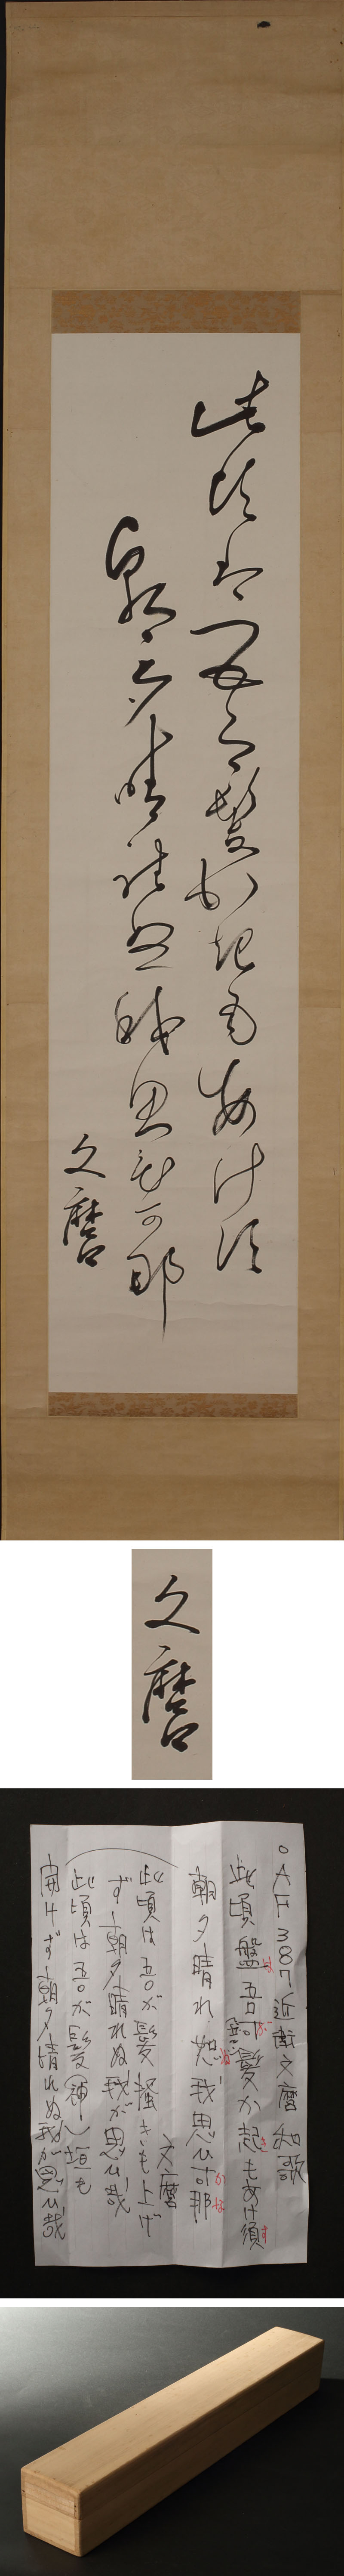 此頃盤吾可髪か起もあけ須
朝夕晴れぬ我思ひ可那
文麿
文麿
○AF387近衛文麿和歌
此頃盤吾可髪か起もあけ須
は が き ず
朝夕晴れ怒我思ひ可那
ぬ かな
文麿
此頃は吾が髪掻きも上げ
ず朝夕晴れぬ我が思ひ哉
此頃は吾が髪(神)垣も
開けず朝夕晴れぬ我が思ひ哉